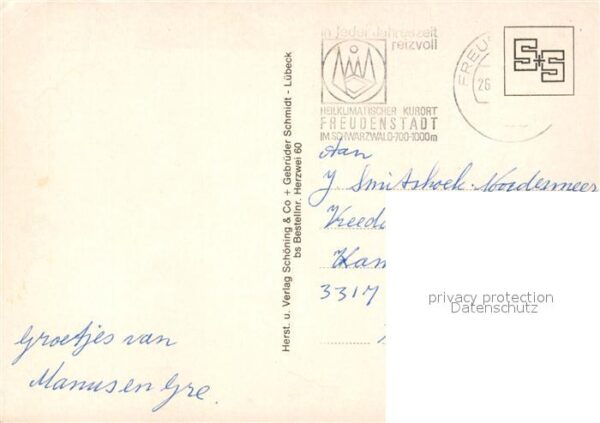 in jeder Jahreszeit
reizvoll
HEILKLIMATISCHER KURORT
FREUDENSTADT
IM SCHWARZWALD·700-1000m
FREU
26
S+S
Herst. u. Verlag Schöning & Co + Gebrüder Schmidt - Lübeck
bs Bestellnr. Herzwei 60
Aan
J Smitshoek-Noordermeer
Vreed
Kam
3317
privacy protection
Datenschutz
Groetjes van
Manus en Gre.